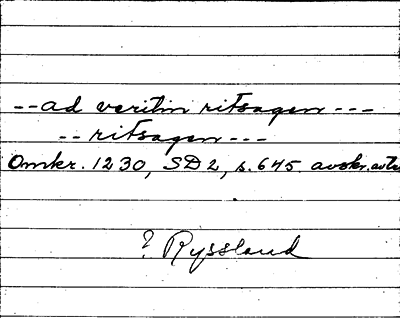 --ad veritin ritsagen---
--ritsagen---
Omkr. 1230, SD2, s.645. avskr.
? Ryssland